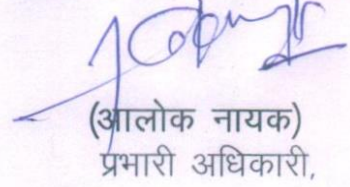 (आलोक नायक)
प्रभारी अधिकारी,